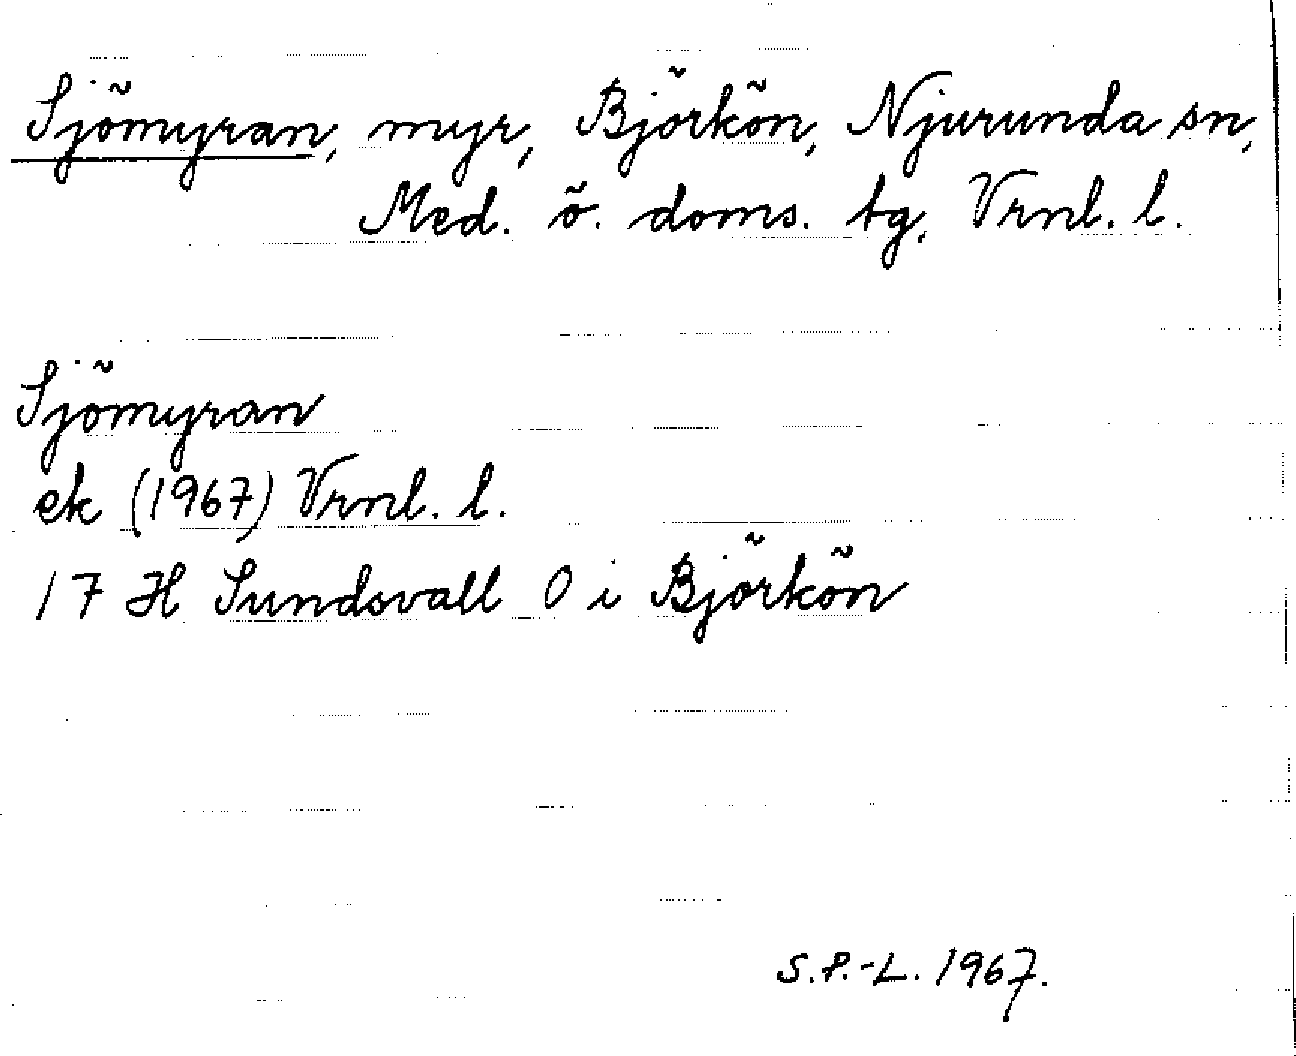 Sjömyran, myr, Björkön, Njurunda sn,
Med. ö. doms. tg, Vrnl. l.
Sjömyran
ek (1967) Vrnl. l.
17 H Sundsvall O i Björkön
S.P.-L. 1967.